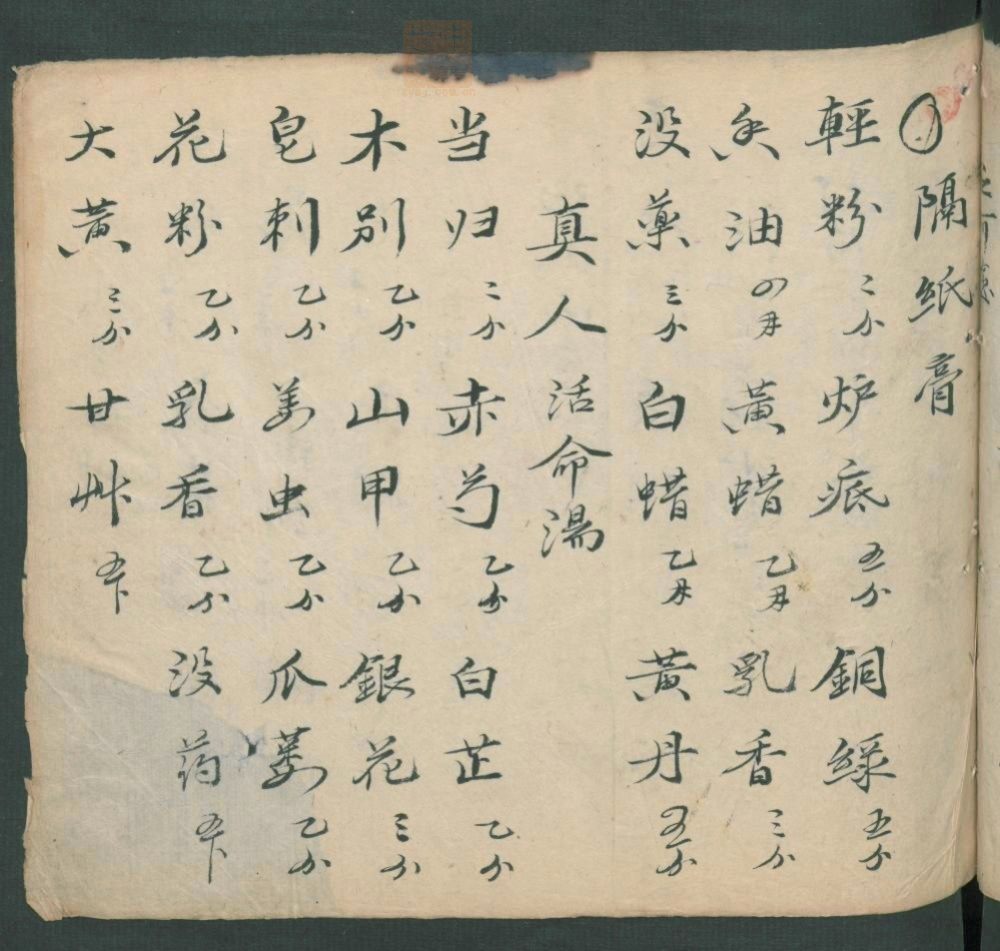 隔紙膏
輕粉 二分 炉底 五分 銅綠 五分
香油 四両 黃蜡 乙両 乳香 三分
没藥 三分 白蜡 乙両 黃丹 五分
真人活命湯
当归 二分 赤芍 乙分 白芷 乙分
木别 乙分 山甲 乙分 銀花 三分
皂刺 乙分 姜虫 乙分 瓜蒌 乙分
花粉 乙分 乳香 乙分 没药 五卜
大黃 三分 甘艸 五卜